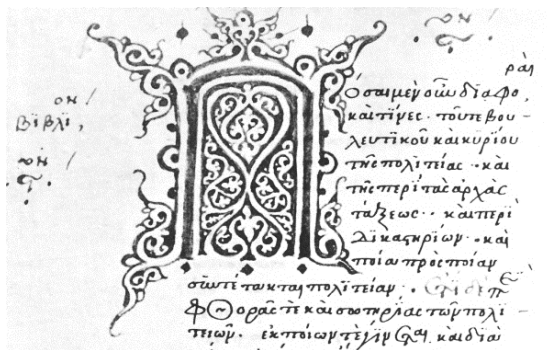 βϊβλϊ,ον
ραὶ
Πόσαι μὲν οὖν διαφο,
καὶ τίνες· τοῦ τε βου-
λευτικοῦ καὶ κυρίου
τῆς πολιτείας· καὶ
τῆς περὶ τὰς ἀρχὰς
τάξεως· καὶ περὶ
δικαστηρίων· καὶ
ποία πρὸς ποίαν
συντέτακται πολιτείαν·
φθορᾶς τε καὶ σωτηρίας τῶν πολι-
τειῶν. ἐκ ποίων τε γίν καὶ διὰ